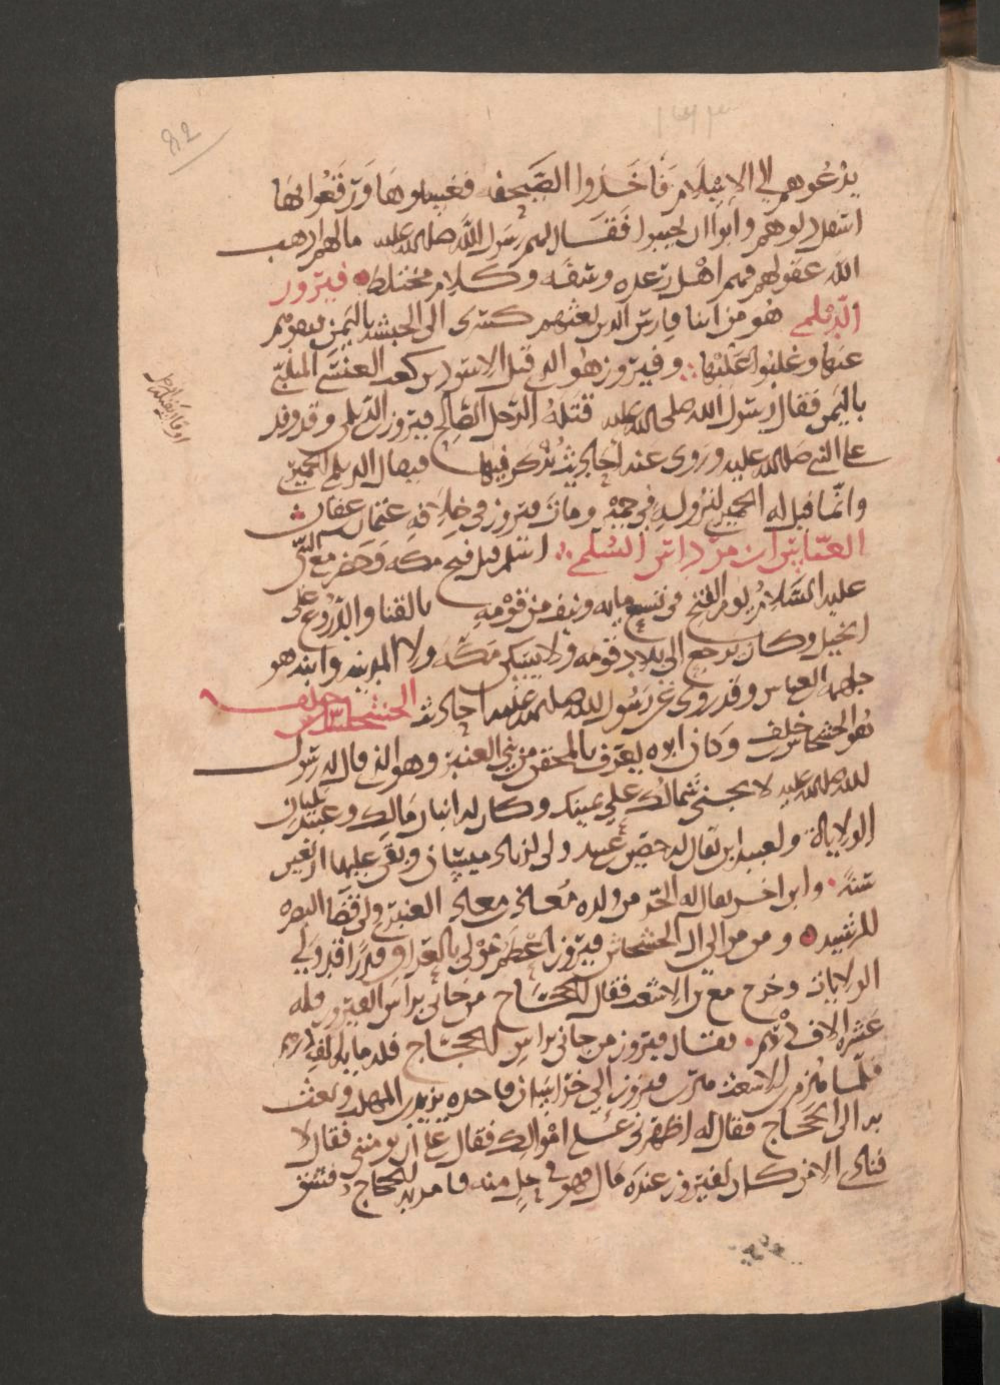 82
يدعوهم الى الاسلام فاخذوا الصحيفه فغسلوها ورقعوا بها
اسفل دلوهم وابوا ان يجيبوا فقال لهم رسول الله صلى الله عليه ما لهم اذهب
الله عقولهم فهم اهل رعده وسفه وكلام مختلط فيروز
الديلمي هو من ابنا فارس الذين بعثهم كسرى الى الحبشه باليمن
عنها وغلبوا عليها وفيروز هو الذي قتل الاسود بن كعب العنسي المتنبي
باليمن فقال رسول الله صلى الله عليه قتله الرجل الصالح فيروز الديلمي وقد وفد
على النبي صلى الله عليه وروى عنه احاديث يذكر فيها فيقال الديلمي الحميري
وانما قيل له الحميري لنزوله في حمير ومات فيروز في خلافه عثمان بن عفان
العباس بن مرداس السلمي اسلم قبل فتح مكه وحضر مع النبي
عليه السلام يوم الفتح في تسع مايه ونيف من قومه بالقنا والدروع على
الخيل وكان يرجع الى بلاد قومه ولا يسكن مكه ولا المدينه وابنه هو
جلهمه بن العباس وقد روى عن رسول الله صلى الله عليه احاديث الخشخاش بن خلف
هو الخشخاش بن خلف وكان ابوه يعرف بالمحفر من بني العنبر وهو الذي قال له رسول
الله صلى الله عليه لا تجني شمالك على يمينك وكان له ابنان مالك وعبيد
الولاية ولعبيد ابن يقال له حصين بن عبيد ولي لزياد ميسان وبقي عليها اربعين
سنة وابن اخر يقال له الحر من ولده معاذ بن معاذ العنبري ولي قضا البصره
للرشيد ومن موالي ال الخشخاش فيروز اعظم مولى بالعراق قدرا قد ولي
الولايات وخرج مع بن الاشعث فقال الحجاج من جاني براس فيروز فله
عشره الاف درهم فقال فيروز من جاني براس الحجاج فله مايه الف درهم
فلما هزم بن الاشعث هرب فيروز الى خراسان فاخذه يزيد بن المهلب وبعث
به الى الحجاج فقال له اظهرني على اموالك فقال على ان تومنني فقال لا
فنادى الا من كان لفيروز عنده مال فهو في حل منه فامر به الحجاج